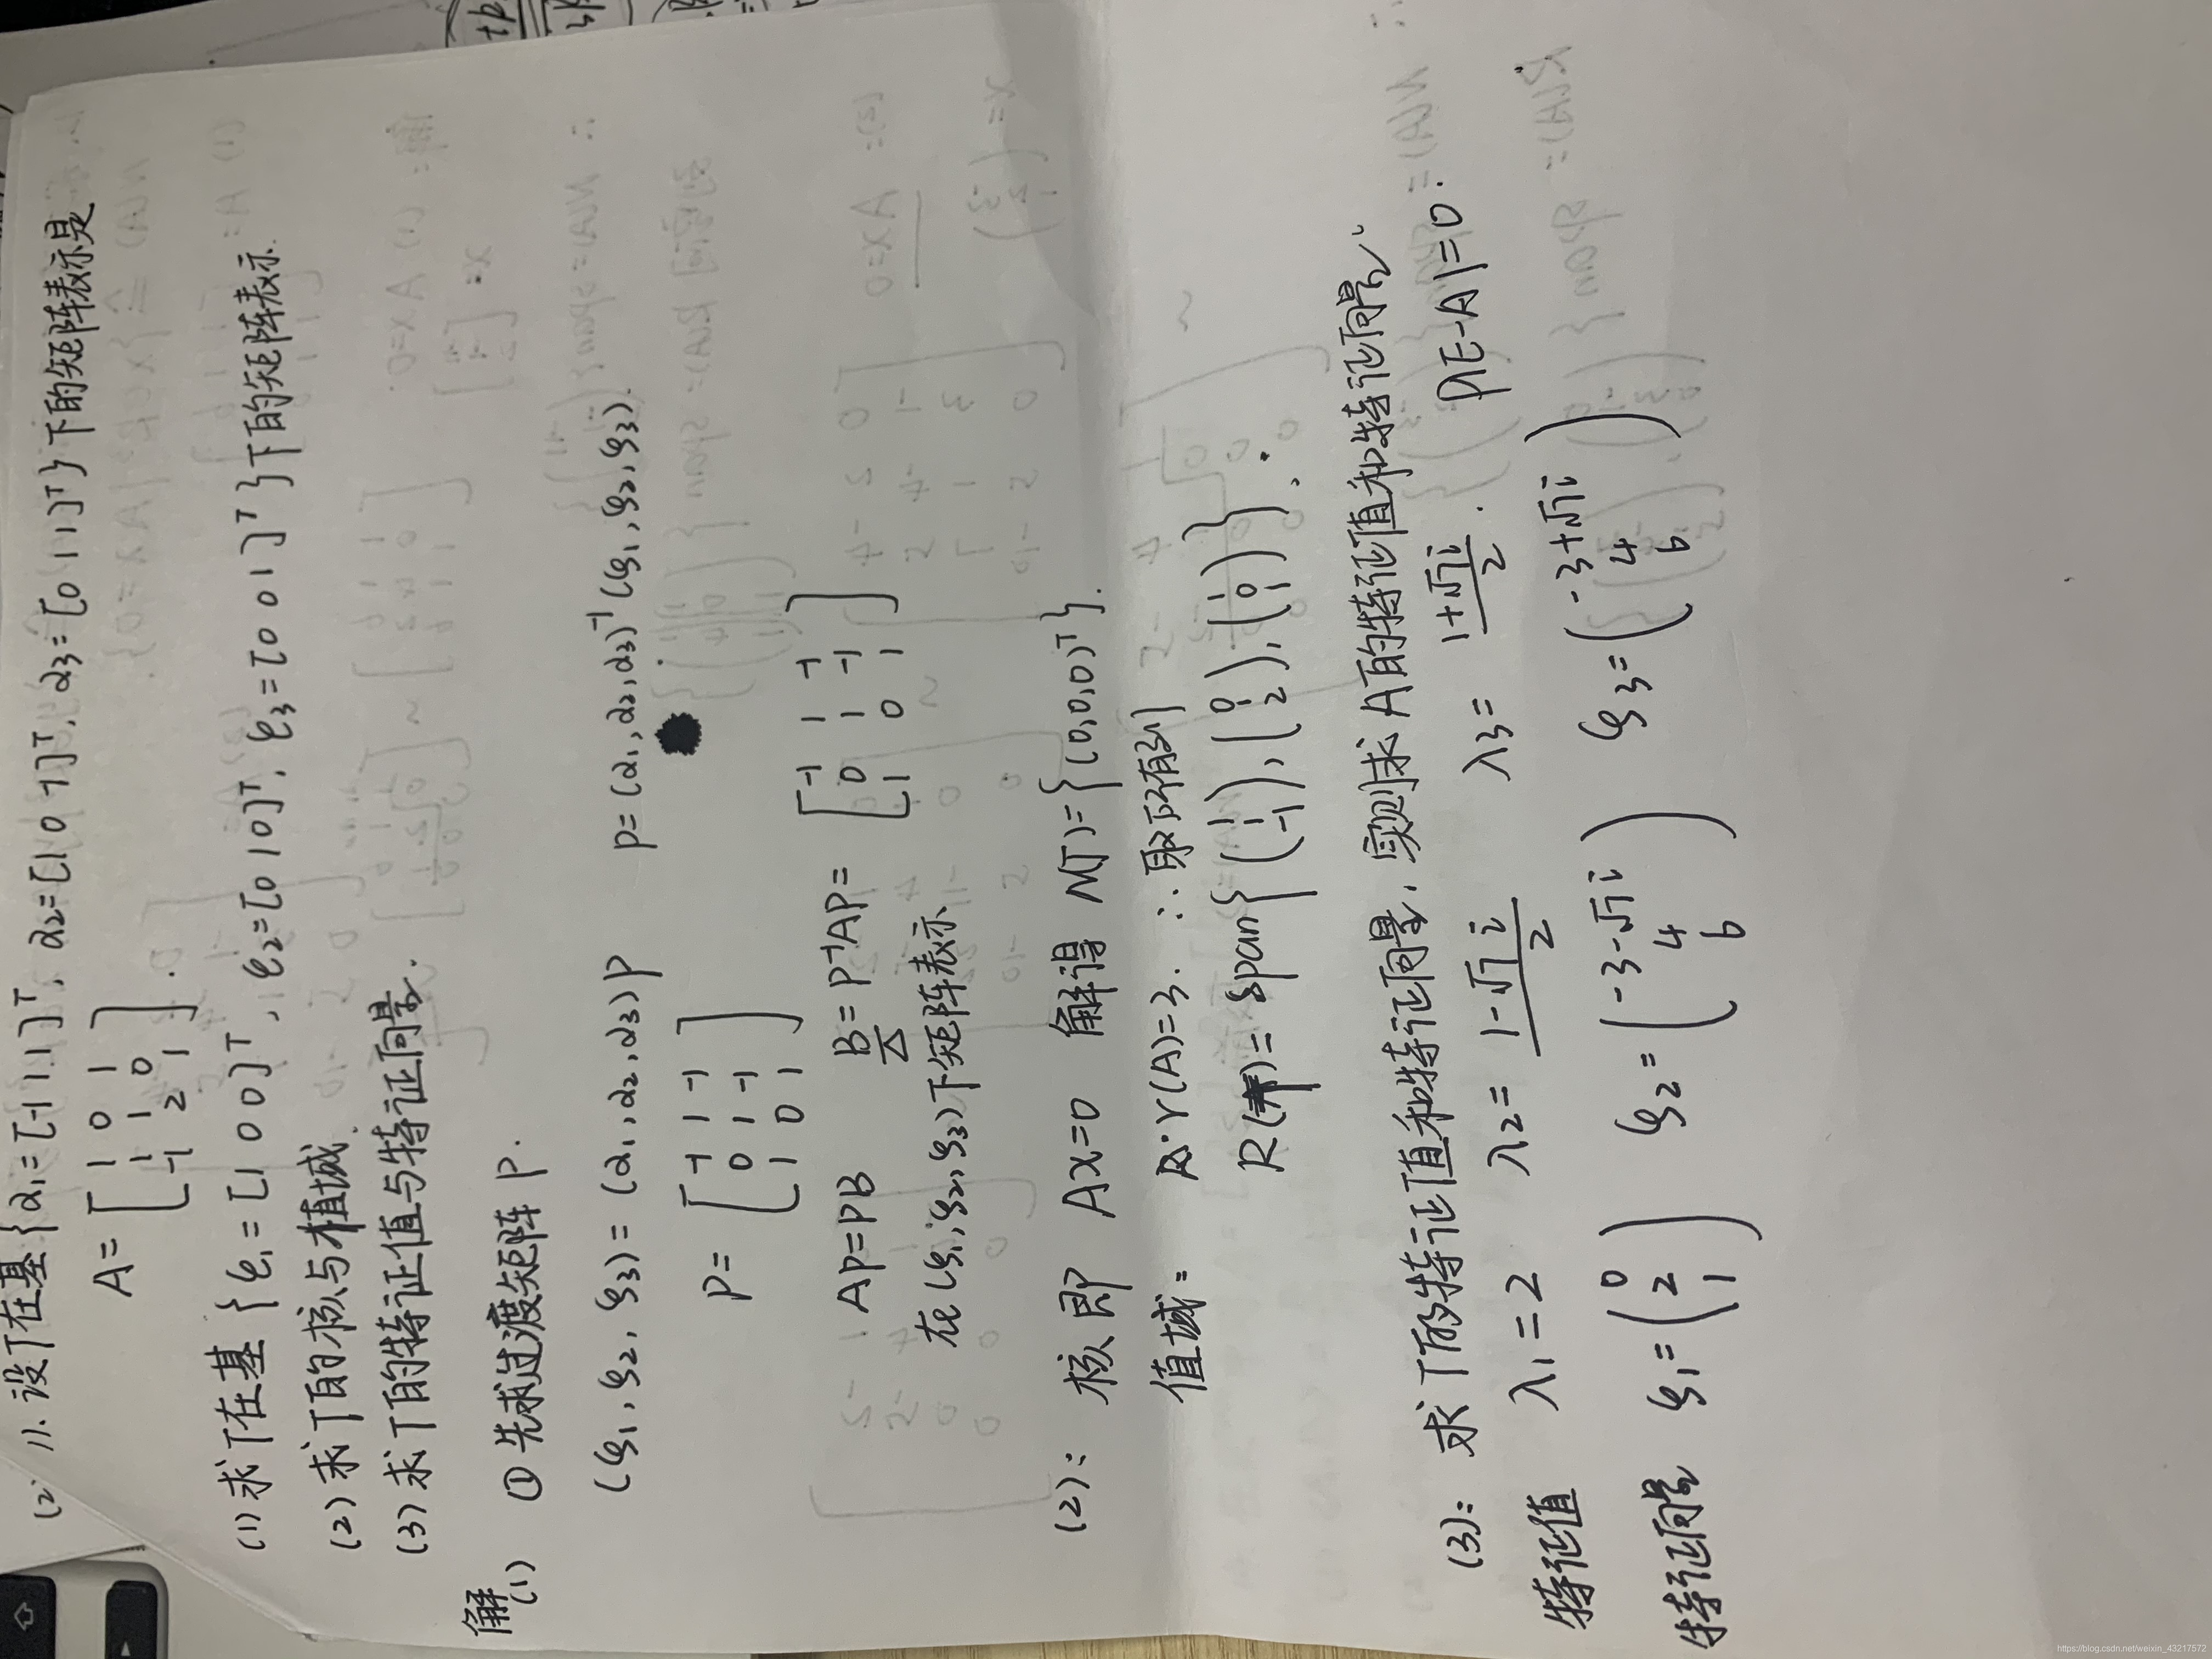 (2) 11. 设T在基{α₁=[-1 1 1]ᵀ, α₂=[1 0 -1]ᵀ, α₃=[0 1 1]ᵀ}下的矩阵表示是
A=[1 0 1
1 1 0
-1 2 1].
(1)求T在基{ξ₁=[1 0 0]ᵀ, ξ₂=[0 1 0]ᵀ, ξ₃=[0 0 1]ᵀ}下的矩阵表示.
(2)求T的核与值域.
(3)求T的特征值与特征向量.
解
(1) ①先求过渡矩阵 P.
(ξ₁, ξ₂, ξ₃)=(α₁,α₂,α₃)P P=(α₁,α₂,α₃)⁻¹(ξ₁,ξ₂,ξ₃).
P=[-1 1 -1
0 1 -1
1 0 1]
AP=PB B=P⁻¹AP=[-1 1 -1
0 1 -1
1 0 1]
在(ξ₁,ξ₂,ξ₃)下矩阵表示
(2): 核即 Ax=0 解得 N(T)={(0,0,0)ᵀ}.
值域: r(A)=3. ∴取所有列
R( )=span{(1 1 -1), (0 1 2), (1 0 1)}.
(3): 求T的特征值和特征向量, 实则求A的特征值和特征向量.
特征值 λ₁=2 λ₂=(1-√7i)/2 λ₃=(1+√7i)/2. |λE-A|=0.
特征向量 ξ₁=(0 2 1) ξ₂=(-3-√7i 4 6) ξ₃=(-3+√7i 4 6)
https://blog.csdn.net/weixin_43217572